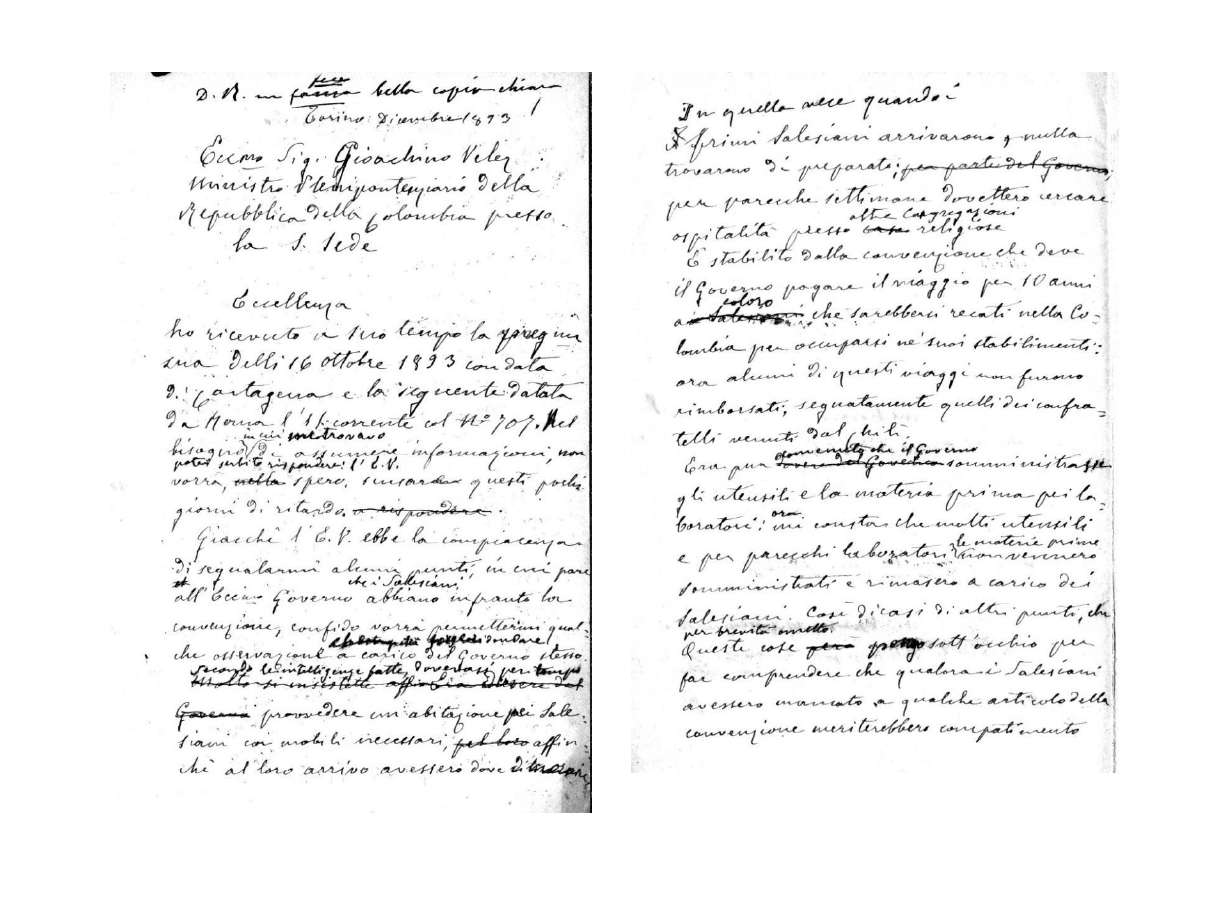 feci
D. R. un bella copia chiara
Torino Dicembre 1893 !
Eccmo Sig. Gioachino Velez
Ministro Plenipontenziario della
Repubblica della Colombia presso
la S. Sede
Eccellenza
ho ricevuto a suo tempo la preg ma
sua delli 16 ottobre 1893 con data
di Cartagena e la seguente datata
da Roma l' corrente col Nº 707. Nel
in cui mi trovavo
bisogno di assumere informazioni, non
potei subito rispondere: l' E. V.
vorrà, nella spero, scusare questi pochi
giorni di ritardo a rispondere.
Giacchè l' E. V. ebbe la compiacenza
di segnalarmi alcuni punti, in cui pare
che i Salesiani
all' Eccmo Governo abbiano infranto la
convenzione, confido vorrà permettermi qual-
che osservazione a carico del Governo stesso
Secondo le intelligenze fatte, dovevasi per tempo
Molto si insistette affinchè del
Governo provvedere un abitazione pei Sale-
siani coi mobili necessari, pel loro affin-
chè al loro arrivo avessero dove
In quella vece quando i
I primi Salesiani arrivarono, nulla
trovarono di preparato; per parte del Governo,
per parecchie settimane dovettero cercare
altre Congregazioni
ospitalità presso case religiose
È stabilito dalla convenzione che deve
il Governo pagare il viaggio per 10 anni
coloro
a i Salesiani che sarebbersi recati nella Co-
lombia per occuparsi ne' suoi stabilimenti:
ora alcuni di questi viaggi non furono
rimborsati, segnatamente quelli dei confra-
telli venuti dal Chilì.
convenuto che il Governo
Era pur dovere del Governo somministrasse
gli utensili e la materia prima pei la-
ora
boratori: mi consta che molti utensili
le materie prime
e per parecchi laboratori non vennero
somministrati e rimasero a carico dei
Salesiani. Così dicasi di altri punti, che
per brevità ometto.
Queste cose però pongo sott' occhio per
far comprendere che qualora i Salesiani
avessero mancato a qualche articolo della
convenzione meriterebbero compatimento